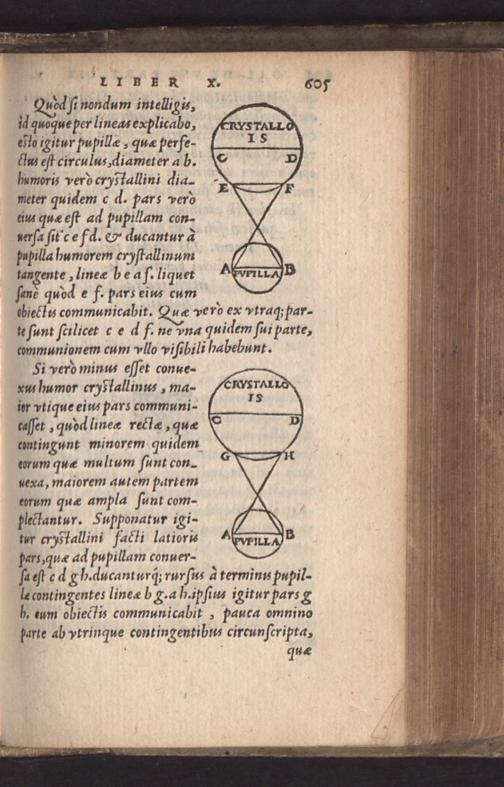 LIBER X. 605
Quòd si nondum intelligis,
id quoque per lineas explicabo,
esto igitur pupillæ, quæ perfe-
ctus est circulus, diameter a b.
humoris verò crystallini dia-
meter quidem c d. pars verò
eius quæ est ad pupillam con-
uersa sit c e f d. & ducantur à
pupilla humorem crystallinum
tangente, lineæ b e a f. liquet
sanè quòd e f. pars eius cum
obiectis communicabit. Quæ verò ex vtraq; par-
te sunt scilicet c e d f. ne vna quidem sui parte,
communionem cum vllo visibili habebunt.
CRYSTALLO
IS
C D
E F
A PUPILLA B
Si vero minus esset conue-
xus humor crystallinus, ma-
ior vtique eius pars communi-
casset, quòd lineæ rectæ, quæ
contingunt minorem quidem
eorum quæ multum sunt con-
uexa, maiorem autem partem
eorum quæ ampla sunt com-
plectantur. Supponatur igi-
tur crystallini facti latioris
pars, quæ ad pupillam conuer-
sa est c d g h. ducanturq́; rursus à terminis pupil-
læ contingentes lineæ b g. a h. ipsius igitur pars g
h. cum obiectis communicabit, pauca omnino
parte ab vtrinque contingentibus circunscripta,
quæ
CRYSTALLO
IS
C D
G H
A PUPILLA B